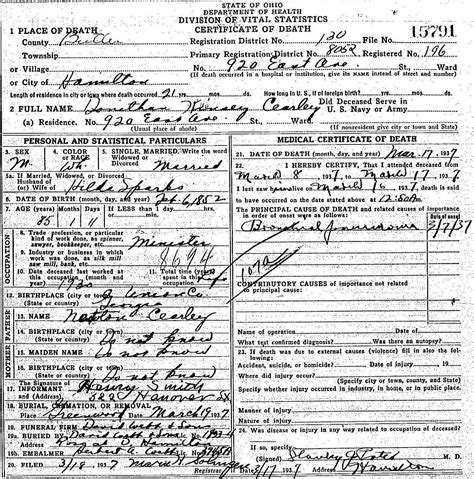 STATE OF OHIO
DEPARTMENT OF HEALTH
DIVISION OF VITAL STATISTICS
CERTIFICATE OF DEATH
1 PLACE OF DEATH
15791
County Butler Registration District No. 130 File No.
Township Primary Registration District No. 8052 Registered No. 196
or Village No. 920 East Ave St. Ward
or City of Hamilton (If death occurred in a hospital or institution, give its NAME instead of street and number)
Length of residence in city or town where death occurred 21 yrs. mos. ds. How long in U.S., if of foreign birth? yrs. mos. ds.
2 FULL NAME Cearley Did Deceased Serve in U. S. Navy or Army
(a) Residence. No. 920 East Ave. St. Ward
(Usual place of abode) (If nonresident give city or town and State)
PERSONAL AND STATISTICAL PARTICULARS
3. SEX M. 4. COLOR or RACE Wh 5. SINGLE, MARRIED, Widowed or Divorced (Write the word) Married
5a. If Married, Widowed, or Divorced
Husband of (or) Wife of Hilda Sparks
6. DATE OF BIRTH (month, day, and year) Feb. 6, 1852
7. AGE Years Months Days If LESS than 1 day
85 1 11
8. Trade, profession, or particular kind of work done, as spinner, sawyer, bookkeeper, etc. Minister
9. Industry or business in which work was done, as silk mill, saw mill, bank, etc. 8694
10. Date deceased last worked at this occupation (month and year) 1930
11. Total time (years) spent in this occupation
12. BIRTHPLACE (city or town) Union Co.
(State or country) Georgia
13. NAME Newton Cearley
14. BIRTHPLACE (city or town) Do not know
(State or country)
15. MAIDEN NAME Do not know
16. BIRTHPLACE (city or town) Do not know
(State or country)
The Signature of
17. INFORMANT Henry Smith
Hanover St
18. BURIAL, CREMATION, OR REMOVAL
Place Greenwood Date March 19, 1937
19. FUNERAL FIRM David Webb & Sons
19a. BURIED BY David Webb & Sons
Hamilton
19b. EMBALMER Herbert A.
20. FILED 3/18, 1937
MEDICAL CERTIFICATE OF DEATH
21. DATE OF DEATH (month, day, and year) Mar. 17, 1937
22. I HEREBY CERTIFY, That I attended deceased from
March 8, 1937, to March 17, 1937
I last saw him alive on March 16, 1937, death is said
to have occurred on the date stated above at
The PRINCIPAL CAUSE OF DEATH and related causes of importance in order of onset were as follows:
Bronchial pneumonia 3/7/37
107a
CONTRIBUTORY CAUSES of importance not related to principal cause:
Name of operation Date of
What test confirmed diagnosis? Was there an autopsy?
23. If death was due to external causes (violence) fill in also the following:
Accident, suicide, or homicide? Date of injury 19
Where did injury occur? (Specify city or town, county, and State)
Specify whether injury occurred in industry, in home, or in public place.
Manner of injury
Nature of injury
24. Was disease or injury in any way related to occupation of deceased?
If so, specify
(Signed) Stanley M. D.
3/17, 1937 Address Hamilton